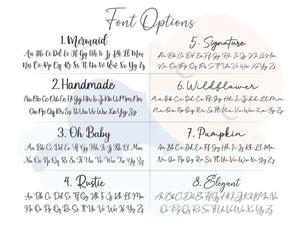 Font Options
1. Mermaid
Aa Bb Cc Dd Ee Ff Gg Hh Ii Jj Kk Ll Mm
Nn Oo Pp Qq Rr Ss Tt Uu Vv Ww Xx Yy Zz
2. Handmade
Aa Bb Cc Dd Ee Ff Gg Hh Ii Jj Kk Ll Mm
Nn Oo Pp Qq Rr Ss Tt Uu Vv Ww Xx Yy Zz
3. Oh Baby
Aa Bb Cc Dd Ee Ff Gg Hh Ii Jj Kk Ll Mm
Nn Oo Pp Qq Rr Ss Tt Uu Vv Ww Xx Yy Zz
4. Rustic
Aa Bb Cc Dd Ee Ff Gg Hh Ii Jj Kk Ll Mm
Nn Oo Pp Qq Rr Ss Tt Uu Vv Ww Xx Yy Zz
5. Signature
Aa Bb Cc Dd Ee Ff Gg Hh Ii Jj Kk Ll Mm
Nn Oo Pp Qq Rr Ss Tt Uu Vv Ww Xx Yy Zz
6. Wildflower
Aa Bb Cc Dd Ee Ff Gg Hh Ii Jj Kk Ll Mm
Nn Oo Pp Qq Rr Ss Tt Uu Vv Ww Xx Yy Zz
7. Pumpkin
Aa Bb Cc Dd Ee Ff Gg Hh Ii Jj Kk Ll Mm
Nn Oo Pp Qq Rr Ss Tt Uu Vv Ww Xx Yy Zz
8. Elegant
Aa Bb Cc Dd Ee Ff Gg Hh Ii Jj Kk Ll Mm
Nn Oo Pp Qq Rr Ss Tt Uu Vv Ww Xx Yy Zz